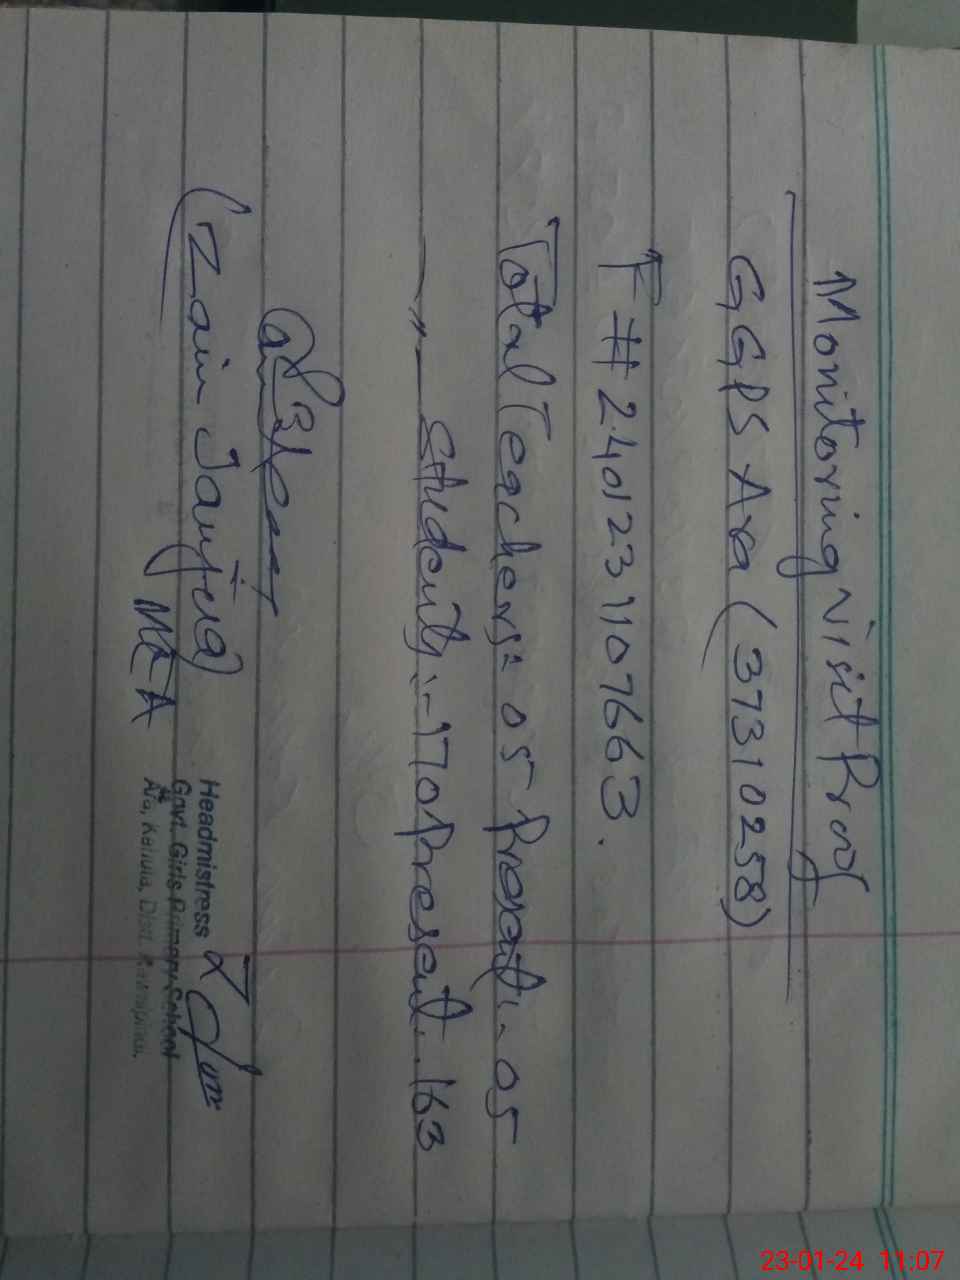 Monitoring Visit Prof
GGPS Ara (37310258)
F # 240123 1107663.
Total Teachers = 05 Present :- 05
—〃— Students :- 170 Present . 163
(Zain
MEA
Headmistress
Govt. Girls Primary School
Ara, Kahuta, Distt. Rawalpindi.
23-01-24 11:07